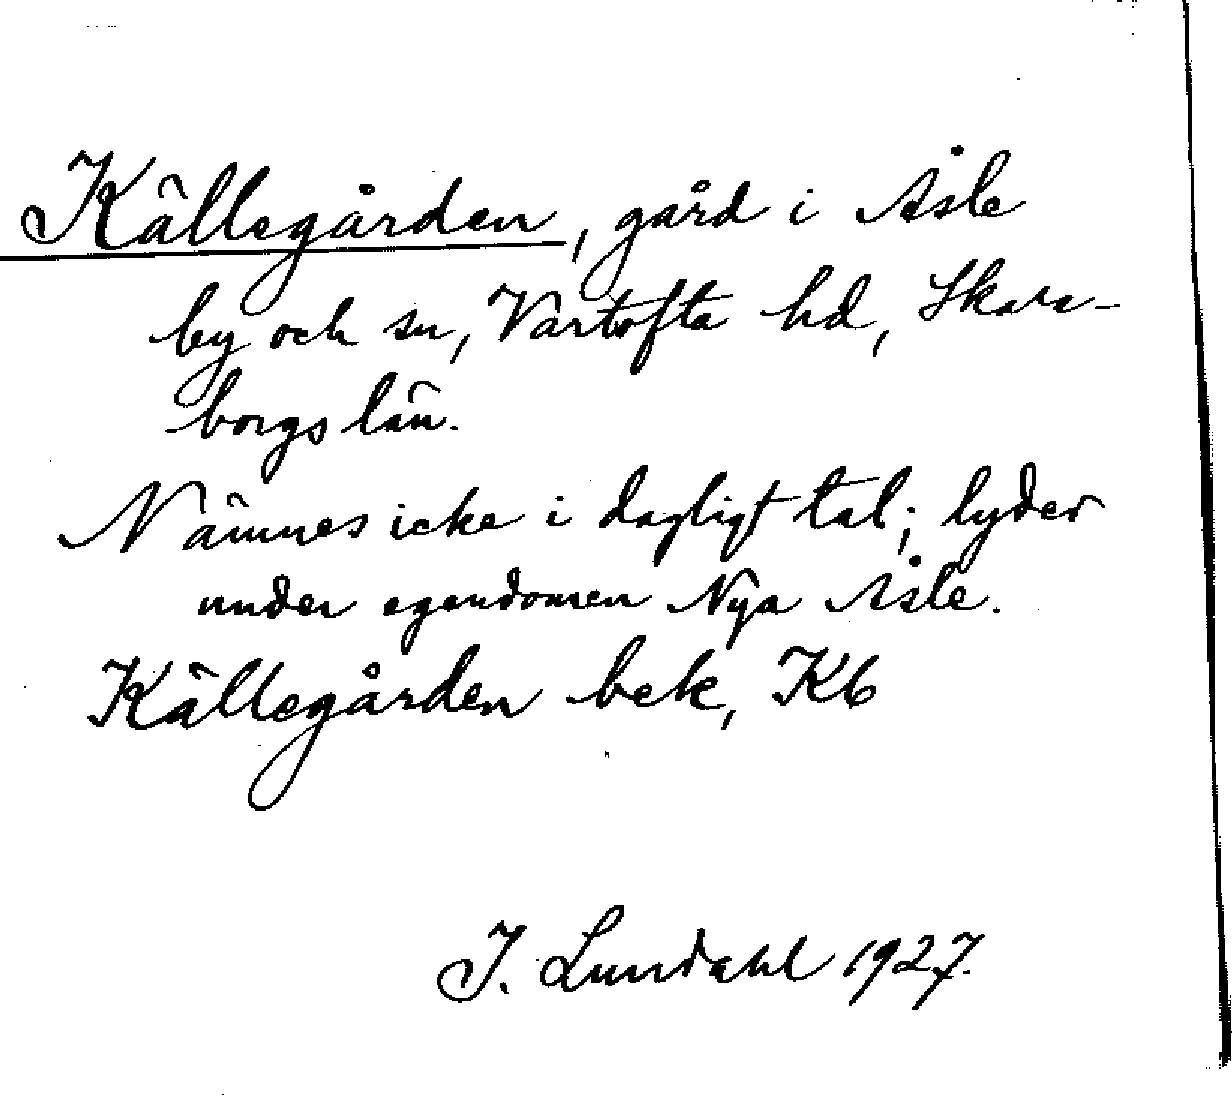 Källegården, gård i Åsle
by och sn, Vartofta hd, Skara-
borgs län.
Nämnes icke i dagligt tal; lyder
under egendomen Nya Åsle.
Källegården bek, K6
I. Lundahl 1927.